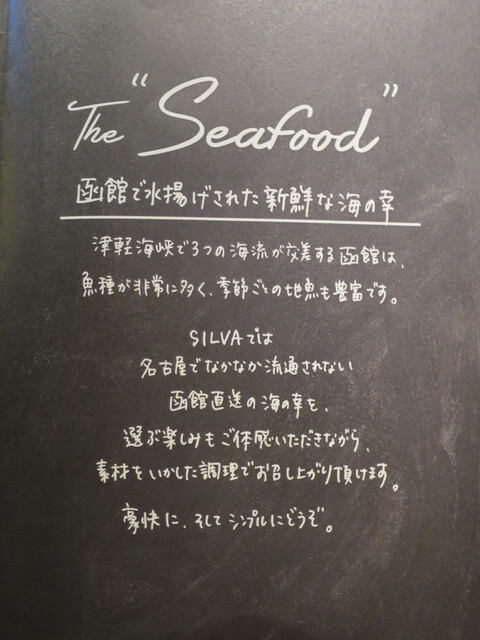 The "Seafood"
函館で水揚げされた新鮮な海の幸
津軽海峡で3つの海流が交差する函館は、
魚種が非常に多く、季節ごとの地魚も豊富です。
SILVAでは
名古屋でなかなか流通されない
函館直送の海の幸を、
選ぶ楽しみもご体感いただきながら、
素材をいかした調理でお召し上がり頂けます。
豪快に、そしてシンプルにどうぞ。